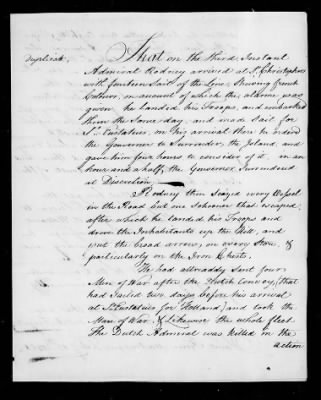 duplicate
That on the third Instant
Admiral Rodney arrived at St. Christophers
with fourteen Sail of the Line, Shewing french
Colours, on account of which the alarm was
given, he landed his Troops, and embarked
them the Same day, and made Sail for
St. Eustatius, on his arrival there he ordered
the Governor to Surrender the Island, and
gave him four hours to consider of it, in an
hour and a half, the Governor Surrendered
at Discretion
Rodney then Seized every Vessel
in the Road but one Schooner that escaped,
after which he landed his Troops and
drove the Inhabitants up the Hill, and
put the broad arrow, on every Store, &
particularly on the Iron Chests.
He had allready Sent four
Men of War after the Dutch Convoy, (that
had Sailed two days before his arrival
at St. Eustatius for Holland) and took the
Man of War, & Likewise the whole fleet
The Dutch Admiral was killed in the
action